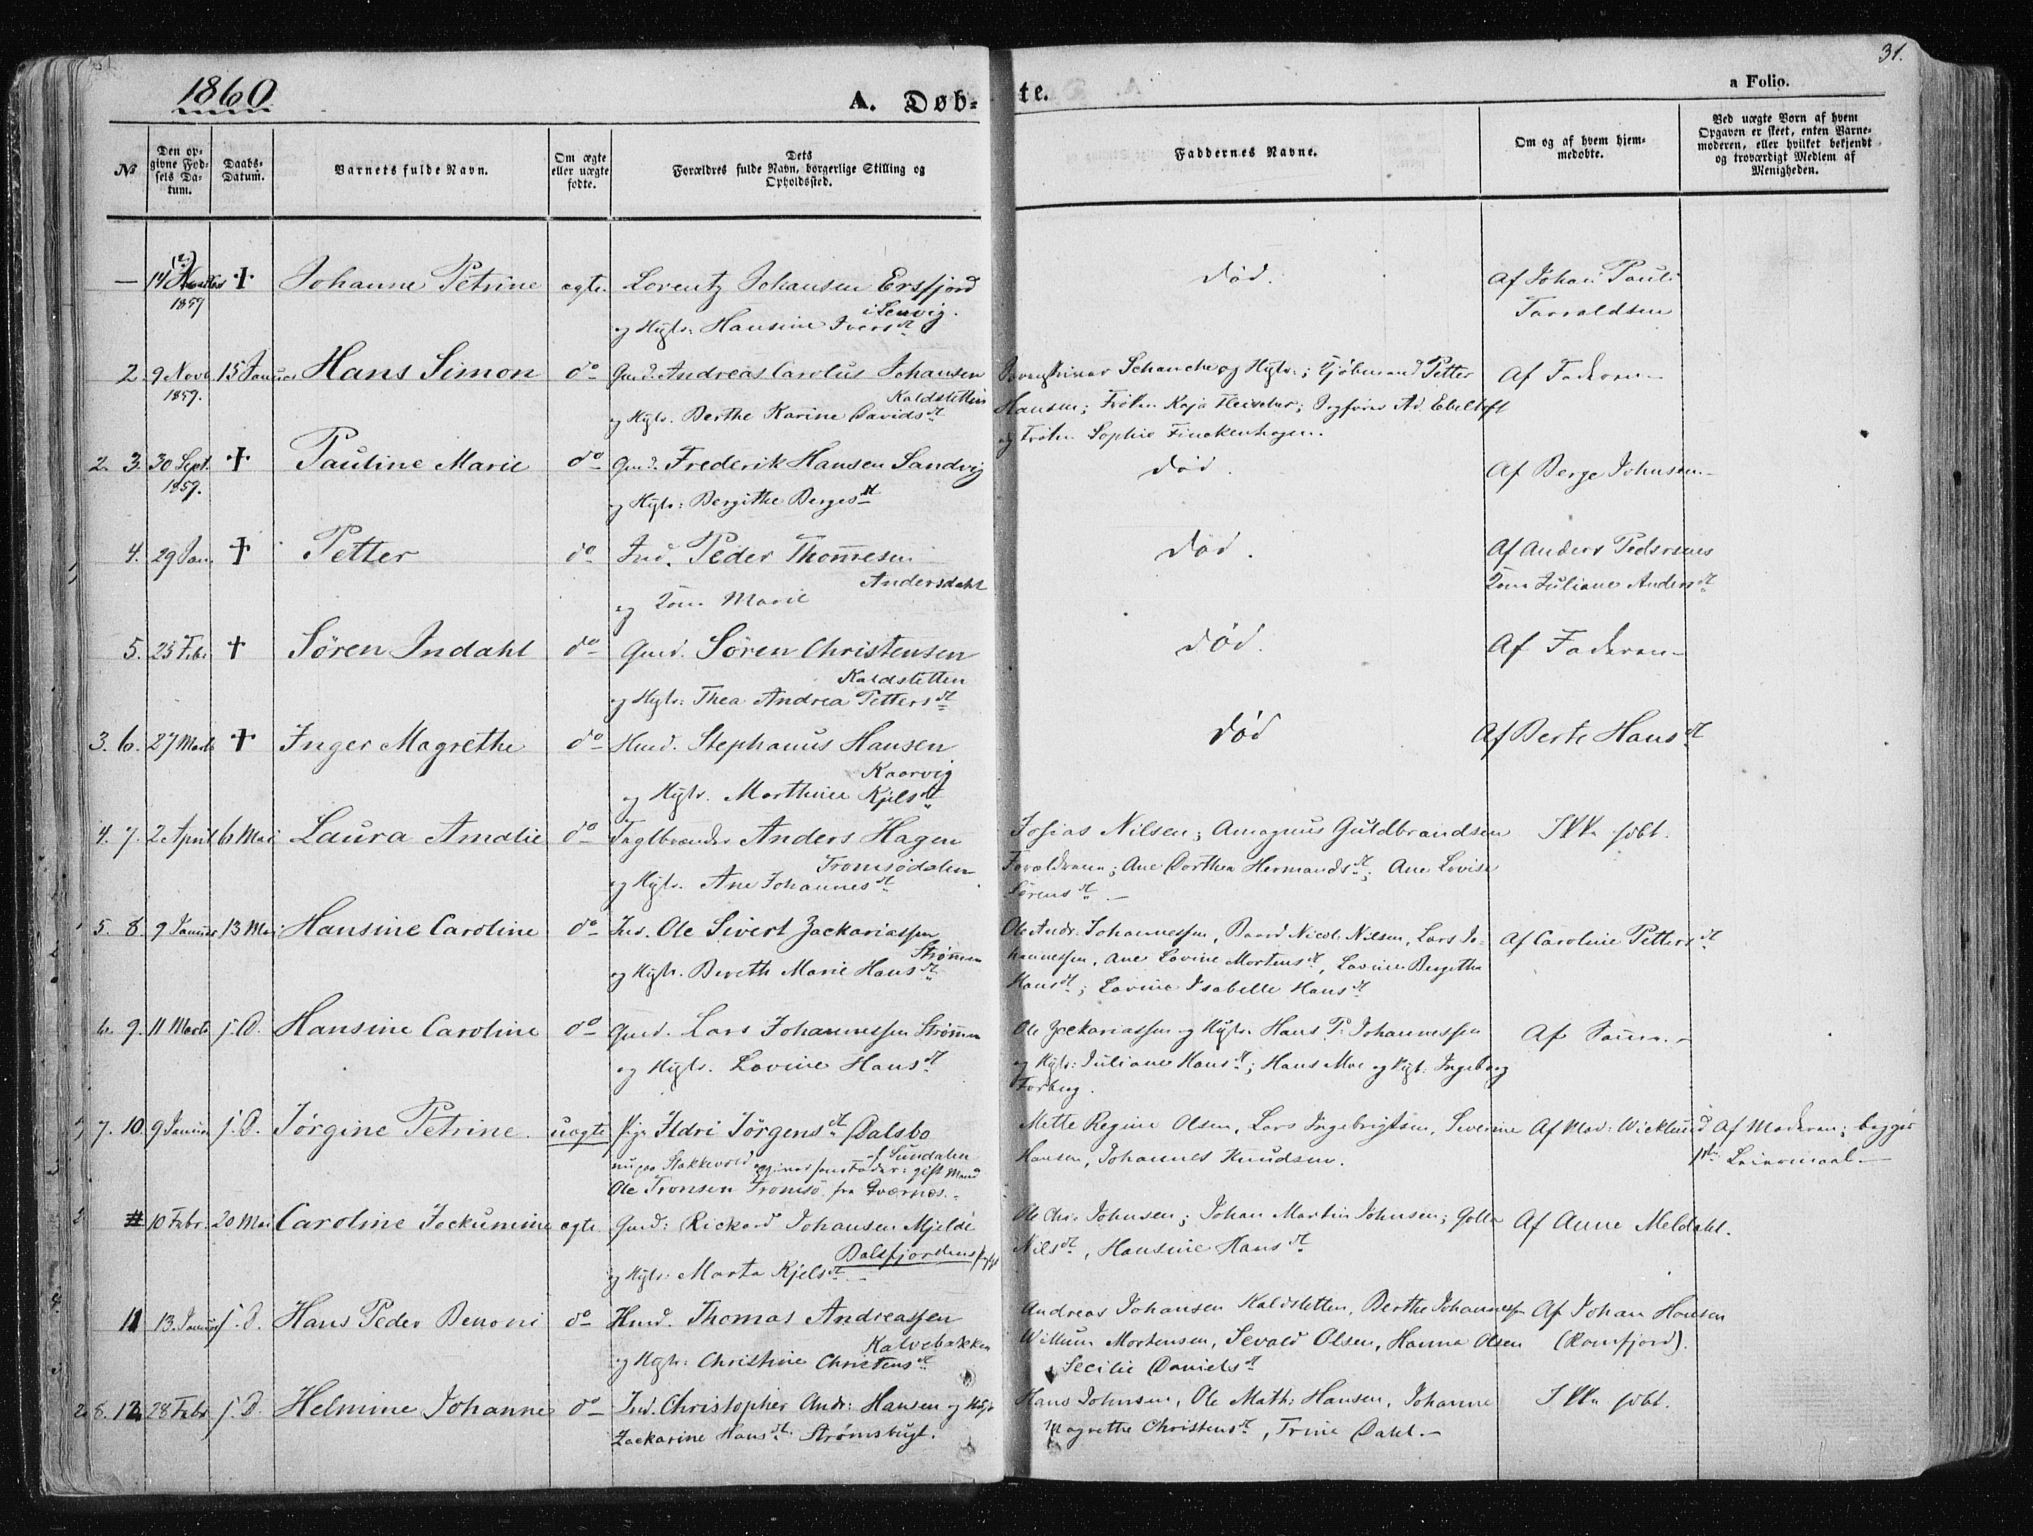 31.
1860
A. Døb-
te.
a Folio.
№
Den op-
givne Fød-
sels Da-
tum.
Daabs-
Datum.
Barnets fulde Navn.
Om ægte
eller uægte
fødte.
Dets
Forældres fulde Navn, borgerlige Stilling og
Opholdssted.
Faddernes Navne.
Om og af hvem hjem-
medøbte.
Ved uægte Born af hvem
Opgaven er skeet, enten Barne-
moderen, eller hvilket bekjendt
og troværdigt Medlem af
Menigheden.
— 14 1859 † Johanne Petrine ægte Lorentz Johansen Ersfjord
i Senvig.
og Hst: Hansine Ivers dt
Død.
Af Johan Pauli
Torraldsen
2. 9 Novb. 1859. 15 Januar Hans Simon do Gmd. Andreas Carolus Johansen
Kaldsletten
og Hst. Berthe Karine Davids dt
Schanche og Hst; Kjøbmand Petter
Hansen; Frøken Kaja Fleischer; Ad. Ebeltoft
og Frøken Sophie Finckenhagen.
Af Faderen
2. 3. 30 Sept. 1859. † Pauline Marie do Gmd. Frederik Hansen Sandvig
og Hst: Bergithe Berges dt
Død.
Af Berge Johnsen
4. 29 Jan. † Petter do Ind. Peder Thomesen
Andersdahl
og Kone Marie
Død.
Af Anders Pedersens
Kone Juliane Anders dt
5. 25 Febr. † Søren Indahl do Gmd. Søren Christensen
Kaldsletten
og Hst: Thea Andrea Petters dt
Død.
Af Faderen
3. 6. 27 Marts † Inger Magrethe do Hmd. Stephanus Hansen
Kaarvig
og Hst. Marthine Kjels dt
Død
Af Berte Hans dt
4. 7. 2 April 6 Mai Laura Amalie do Teglbrænder Anders Hagen
Tromsødalen
og Hst. Ane Johannes dt
Josias Nilsen; Amagnus Guldbrandsen
Forældrene; Ane Dorthea Hermands dt; Ane Lovise
Sørens dt
Ikke døbt.
5. 8. 9 Januar 13 Mai Hansine Caroline do Ind. Ole Sivert Zackariassen
Strømmen
og Hst. Bereth Marie Hans dt
Ole Andr. Johannessen, Baard Nicol. Nilsen, Lars Jo-
hannessen, Ane Lovine Mortens dt, Lovine Bergitha
Hans dt; Lovine Isabelle Hans dt
Af Caroline Petters dt
6. 9. 11 Marts j. D. Hansine Caroline do Gmd. Lars Johannessen Strømmen
og Hst. Lovine Hans dt
Ole Zackariassen og Hst. Hans P. Johannessen
og Hst: Juliane Hans dt; Hans Moe og Hst: Ingeborg
Forberg.
Af Samme
7. 10. 9 Januar j. D. Jørgine Petrine. uægte Pige Ildri Jørgens dt Dalsbo
af Sundalen
nu paa Stakkevold Fader: gift Mand
Ole Tronsen Tromsø fra Tværnæs.
Mette Regine Olsen, Lars Ingebrigtsen, Severine
Hansen, Johannes Knudsen.
Af Mad: Wicklund
Af Moderen; begges
1ste Leiermaal
# 10 Febr. 20 Mai Caroline Jockumine ægte Gmd: Rickard Johansen Mjelde
Balsfjordens
og Hst: Marta Kjels dt
Ole Chr. Johnsen; Johan Martin Johnsen; Golla
Nils dt, Hansine Hans dt
Af Anne Meldahl.
11 13 Januar j. D. Hans Peder Benoni do Hmd. Thomas Andreassen
Kalvebakken
og Hst: Christine Christens dt
Andreas Johansen Kaldsletten, Berthe Johannessen
Willum Mortensen, Sevald Olsen, Hanna Olsen
Secilie Daniels dt
Af Johan Hansen
(Ramfjord).
8. 12 28 Febr j. D. Helmine Johanne do Ind. Christopher Andr: Hansen og Hst
Zackarine Hans dt. Strømsbugt.
Hans Johnsen, Ole Math: Hansen, Johanne
Magrethe Christens dt, Trine Dahl.
Ikke døbt.